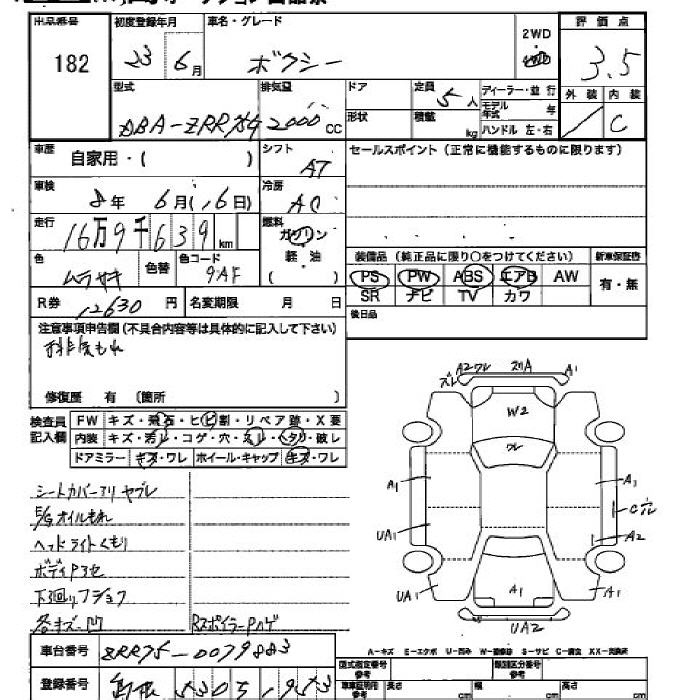 出品番号 初度登録年月 車名・グレード 2WD 評価点
182 23年 6月 ボクシー 3.5
型式 排気量 ドア 定員 5人 ディーラー・並行 外装 内装
DBA-ZRR75G 2000cc 形状 積載 kg モデル年式 年 C
ハンドル 左・右
車歴 自家用・( ) シフト AT セールスポイント(正常に機能するものに限ります)
車検 8年 6月(16日) 冷房 AC
走行 16万9千639km 燃料 ガソリン
軽油
( )
色 ムラサキ 色替 色コード 9AF
装備品(純正品に限り○をつけてください) 新車保証書
PS PW ABS エアB AW 有・無
SR ナビ TV カワ
R券 12630円 名変期限 月 日 後日品
注意事項申告欄(不具合内容等は具体的に記入して下さい)
排気もれ
修復歴 有 〔箇所 〕
検査員記入欄 FW キズ・飛石・ヒビ割・リペア跡・X要
内装 キズ・汚レ・コゲ・穴・スレ・ヘタリ・破レ
ドアミラー キズ・ワレ ホイール・キャップ キズ・ワレ
シートカバーアリ ヤブレ
E/Gオイルもれ
ヘッドライトくもり
ボディPアセ
下廻りフショク
各キズ凹 RスポイラーPハゲ
A2ワレ スリA A1
ズレ
W2
ワレ
A1 A1
C穴
UA1 A2
UA1 A1 A1
UA2
A-キズ E-エクボ U-凹み W-補修跡 S-サビ C-腐食 XX-交換済
車台番号 ZRR75-0079883
型式指定番号 参考 類別区分番号 参考
登録番号 島根 530
車庫証明用 参考 長さ cm 幅 cm 高さ cm